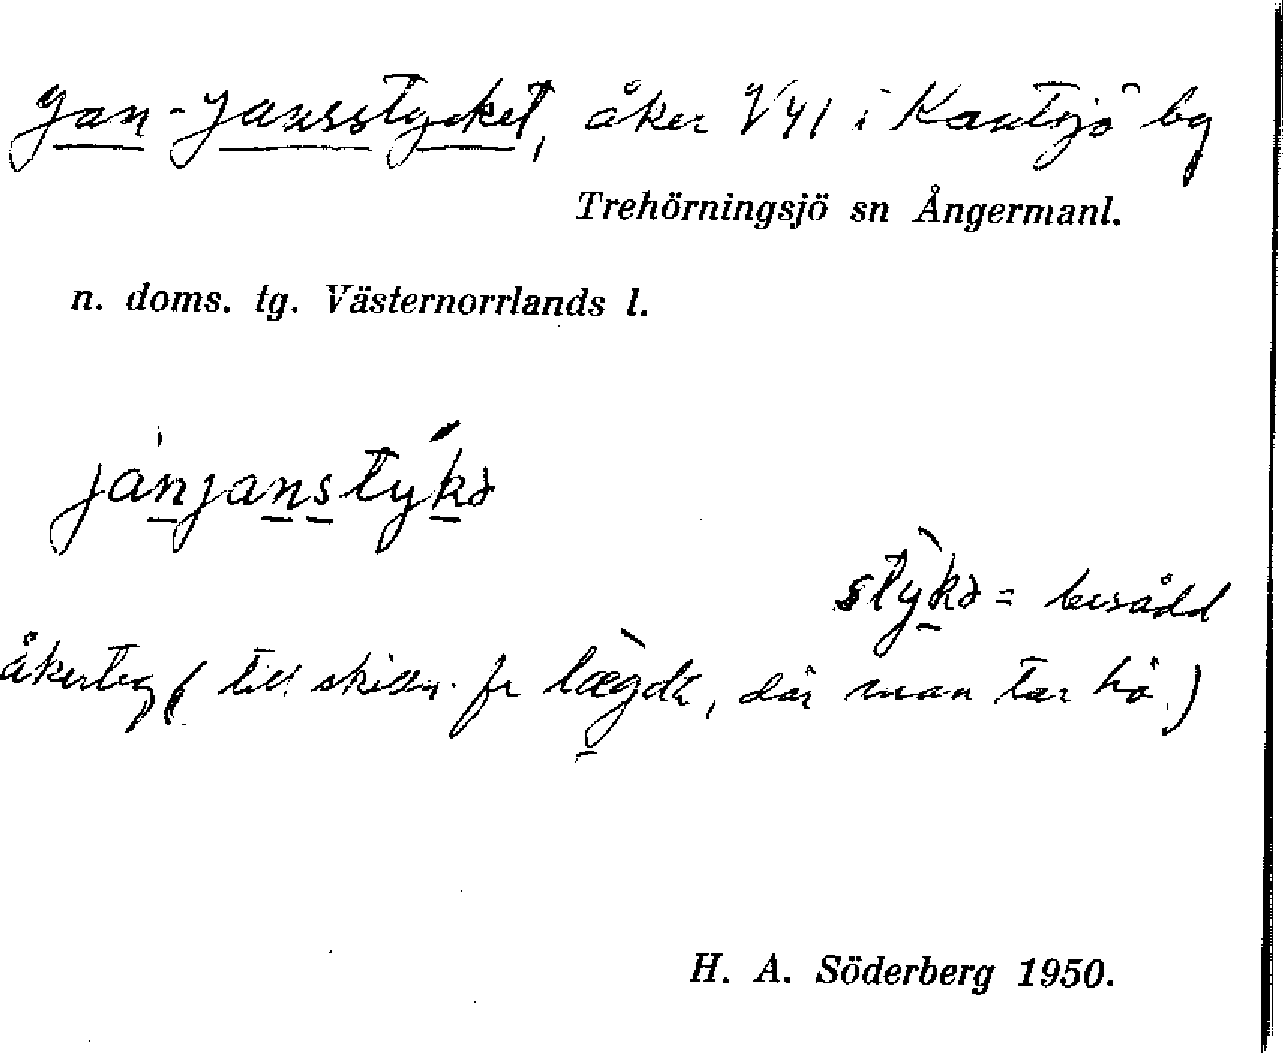 Jan-Jansstycket, åker V41 i Kantsjö by
Trehörningsjö sn Ångermanl.
n. doms. tg. Västernorrlands l.
janjanstykə
stykə = besådd
åkerteg (till skilln. fr lægda, där man tar hö.)
H. A. Söderberg 1950.